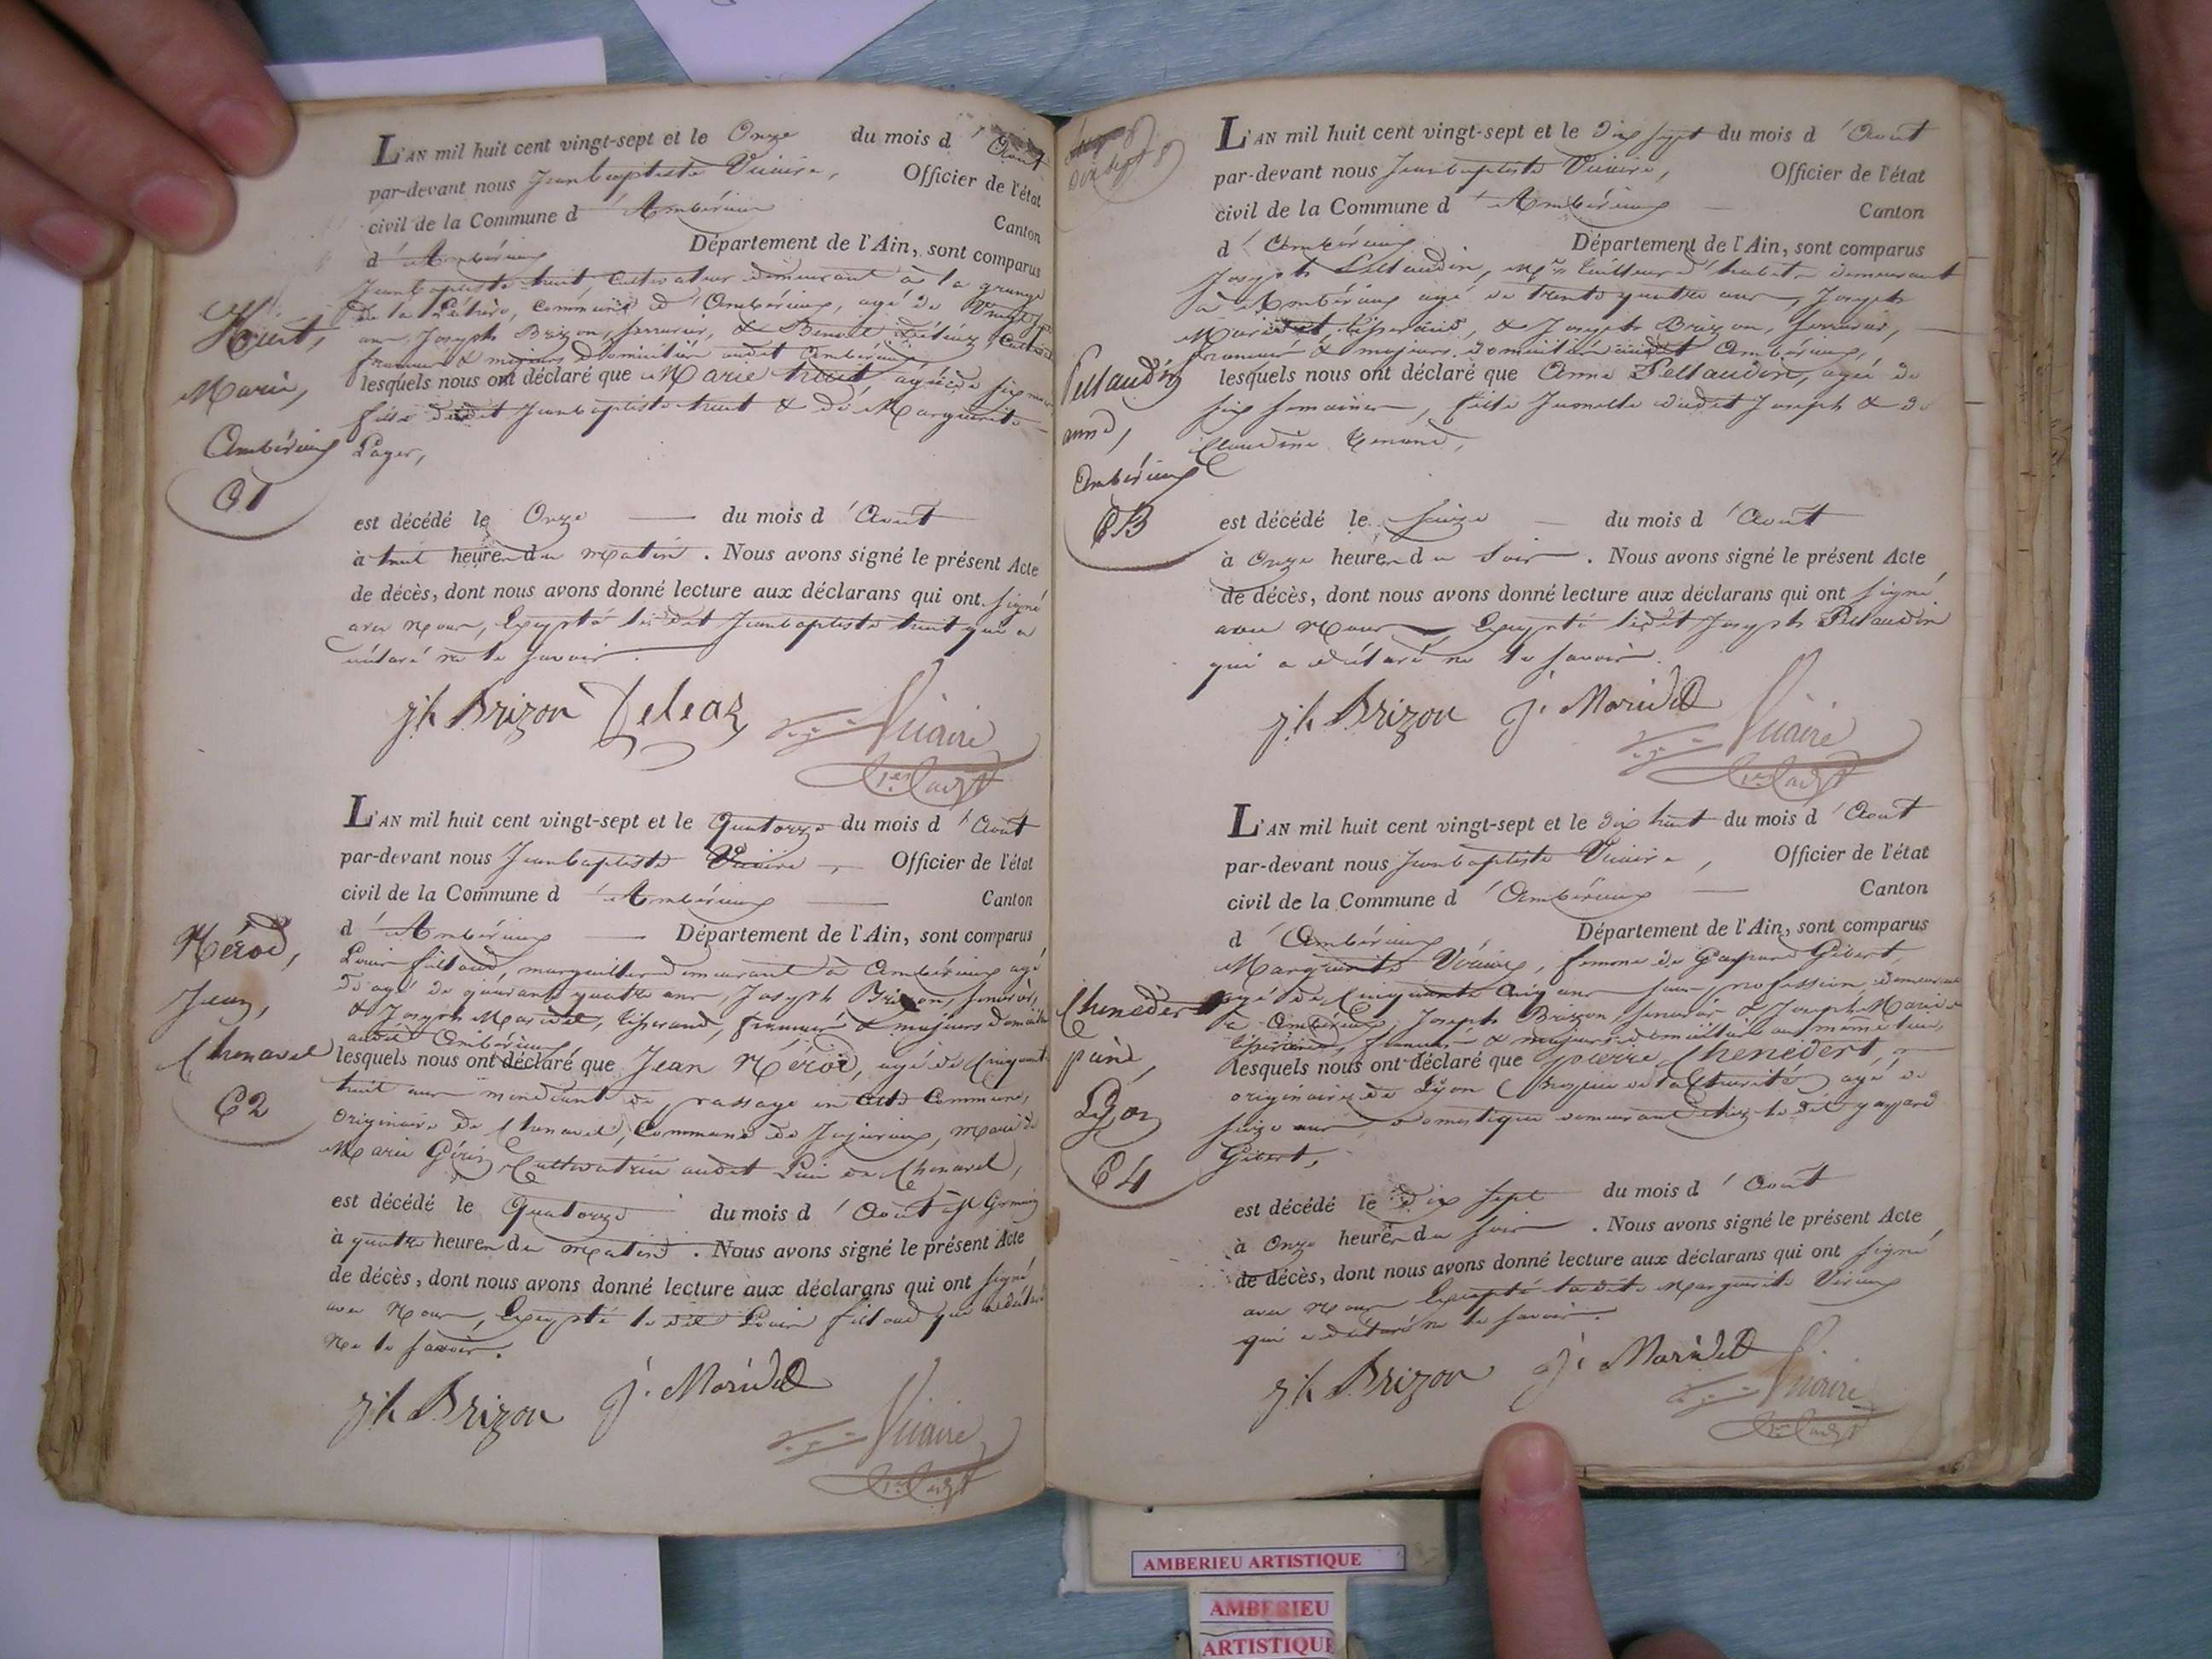 L'AN mil huit cent vingt-sept et le Onze du mois d'Aout
par-devant nous Jeanbaptiste Vicaire, Officier de l'état
civil de la Commune d'Ambérieux Canton
d'Ambérieux Département de l'Ain, sont comparus
Jeanbaptiste huit, Cultivateur demeurant à la grange
de la commune d'Ambérieux, agé de
ans, Joseph Brizon, serrurier, & Benoit
français & majeurs domiciliés audit Ambérieux
lesquels nous ont déclaré que Marie huit, agée de six mois
fille dudit Jeanbaptiste huit & de Marguerite
Pager,
Huit,
Marie,
Ambérieux
61
est décédé le Onze du mois d'Aout
à huit heures du matin. Nous avons signé le présent Acte
de décès, dont nous avons donné lecture aux déclarans qui ont signé
avec Nous, Excepté ledit Jeanbaptiste huit qui a
déclaré ne le savoir.
jh Brizon Deleaz Vicaire
L'AN mil huit cent vingt-sept et le Quatorze du mois d'Aout
par-devant nous Jeanbaptiste Vicaire, Officier de l'état
civil de la Commune d'Ambérieux Canton
d'Ambérieux Département de l'Ain, sont comparus
Louis fillaud, marguillier demeurant à Ambérieux agé
de agé de quarante quatre ans, Joseph Brizon, serrurier,
& Joseph Maridet, tisserand, français & majeurs domiciliés
audit Ambérieux
lesquels nous ont déclaré que Jean Hérod, agé de Cinquante
huit ans mendiant de passage en cette Commune,
originaire de Chenavel, Commune de Jujurieux, marié à
Marie Cultivatrice audit Lieu de Chenavel,
Hérod,
Jean,
Chenavel
62
est décédé le Quatorze du mois d'Aout à St Germain
à quatre heures du matin. Nous avons signé le présent Acte
de décès, dont nous avons donné lecture aux déclarans qui ont signé
avec Nous, Excepté le dit Louis fillaud qui a déclaré
Ne le savoir.
jh Brizon j. Maridet Vicaire
L'AN mil huit cent vingt-sept et le dix sept du mois d'Aout
par-devant nous Jeanbaptiste Vicaire, Officier de l'état
civil de la Commune d'Ambérieux Canton
d'Ambérieux Département de l'Ain, sont comparus
Joseph Pellaudin, Md tailleur d'habits demeurant
à Ambérieux agé de trente quatre ans, Joseph
Maridet, tisserand, & Joseph Brizon, serrurier,
français & majeurs domiciliés audit Ambérieux,
lesquels nous ont déclaré que Anne Pellaudin, agée de
six semaines, fille Jumelle dudit Joseph & de
Claudine
Pellaudin
anne,
Ambérieux
63
est décédé le seize du mois d'Aout
à Onze heures du soir. Nous avons signé le présent Acte
de décès, dont nous avons donné lecture aux déclarans qui ont signé
avec Nous Excepté ledit Joseph Pellaudin
qui a déclaré ne le savoir.
jh Brizon j. Maridet Vicaire
L'AN mil huit cent vingt-sept et le dix huit du mois d'Aout
par-devant nous Jeanbaptiste Vicaire, Officier de l'état
civil de la Commune d'Ambérieux Canton
d'Ambérieux Département de l'Ain, sont comparus
Marguerite femme de Gaspard Gibert,
agé de Cinquante Cinq ans sans profession, demeurant
à Ambérieux, Joseph Brizon, serrurier & Joseph Maridet
tisserand, français & majeurs domiciliés au même lieu,
lesquels nous ont déclaré que pierre Chenedert,
originaire de Lyon (hospice de la Charité) agé de
seize ans domestique demeurant chez le dit gaspard
Gibert,
Chenedert
pierre,
Lyon
64
est décédé le dix sept du mois d'Aout
à Onze heures du soir. Nous avons signé le présent Acte
de décès, dont nous avons donné lecture aux déclarans qui ont signé
avec Nous Excepté ladite Marguerite
qui a déclaré ne le savoir.
jh Brizon j. Maridet Vicaire
AMBERIEU ARTISTIQUE
AMBERIEU
ARTISTIQUE